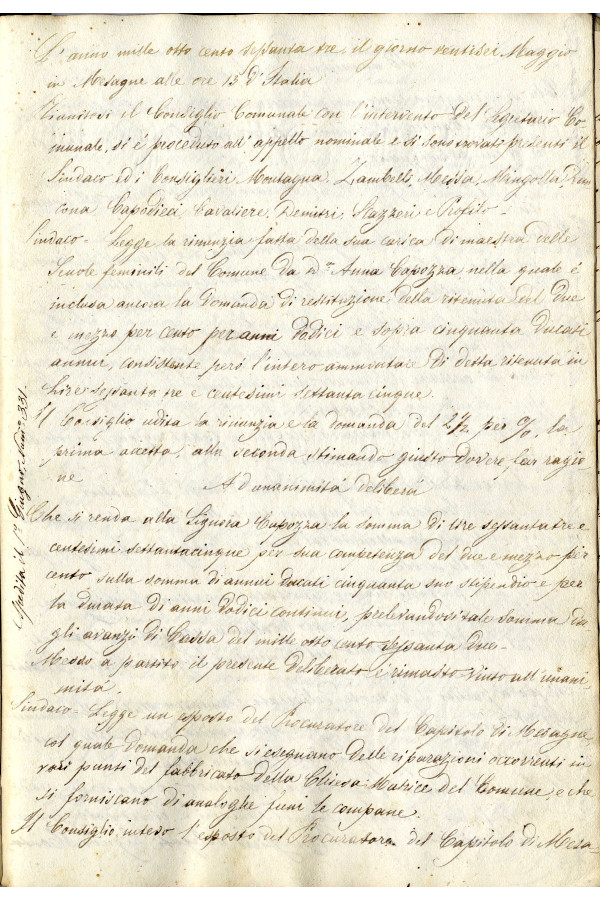 L'anno mille otto cento settanta tre, il giorno ventisei Maggio
in Mesagne alle ore 15 d'Italia
Riunitosi il Consiglio Comunale con l'intervento del Segretario Co-
munale, si é proceduto all'appello nominale e si sono trovati presenti il
Sindaco ed i Consiglieri Montagna, Zambelli, Messa, Mingolla,
cona Capodieci Cavaliere, Demitri Scazzeri e Profilo -
Sindaco - Legge la rinunzia fatta della sua carica di maestra delle
Scuole feminili del Comune da Dª Anna Capozza, nella quale é
inclusa ancora la domanda di restituzione della ritenuta del due
e mezzo per cento per anni dodici e sopra cinquanta ducati
annui, consistente peró l'intero ammontare di detta ritenuta in
Lire settanta tre e centesimi settanta cinque.
Il Consiglio udita la rinunzia e la domanda del 2½ per %, la
prima accetta, alla seconda stimando giusto dovere far ragio-
ne
Ad unanimitá delibera
Che si renda alla Signora Capozza la somma di lire settanta tre e
centesimi settantacinque per sua competenza del due e mezzo per
cento sulla somma di annui ducati cinquanta suo stipendio e per
la durata di anni dodici continui, prelevandosi tale somma da-
gli avanzi di Cassa del mille otto cento settanta due -
Messo a partito il presente deliberato é rimasto vinto all'unani-
mitá.
Sindaco - Legge un esposto del Procuratore del Capitolo di Mesagne
col quale domanda che si eseguano delle riparazioni occorrenti in
varî punti del fabbricato della Chiesa Matrice del Comune, e che
si forniscano di analoghe funi le campane.
Il Consiglio, inteso l'esposto del Procuratore del Capitolo di Mesa-
Spedita il 1º Giugno, Numº 331.